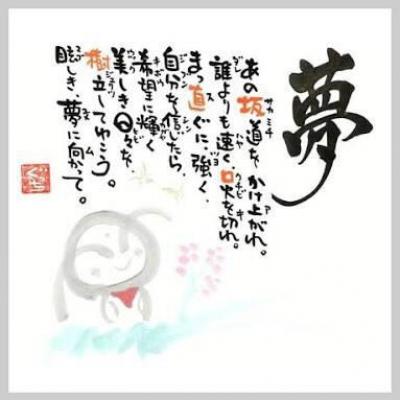 夢
あの坂道を、かけ上がれ。
誰よりも速く、口火を切れ。
まっ直ぐに、強く、
自分を信じたら、
希望に輝く
美しき日々を、
樹立してゆこう。
眩しき、夢に向かって。